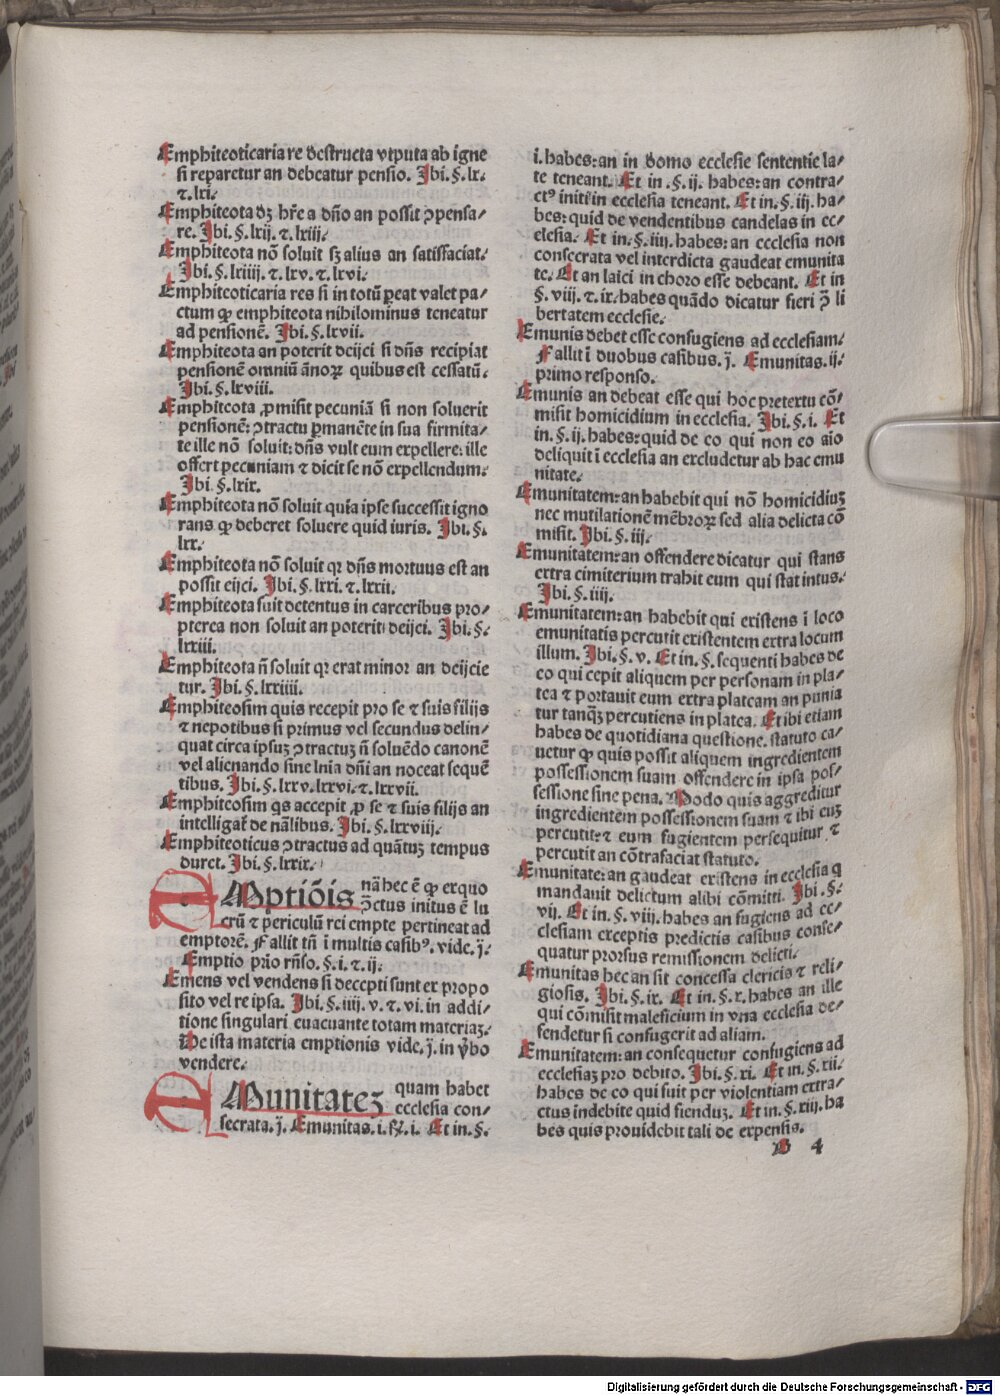 Emphiteoticaria re destructa vtputa ab igne
si reparetur an debeatur pensio. Ibi. §. lx.
⁊. lxi.
Emphiteota dꝫ hr̃e a dño an possit ↄpensa/
re. Ibi. §. lxij. ⁊. lxiii.
Emphiteota nõ soluit sꝫ alius an satisfaciat.
Ibi. §. lxiiii. ⁊. lxv. ⁊. lxvi.
Emphiteoticaria res si in totũ ꝑeat valet pa/
ctum ꝙ emphiteota nihilominus teneatur
ad pensionẽ. Ibi. §. lxvii.
Emphiteota an poterit deijci si dñs recipiat
pensionẽ omniũ ãnoꝝ quibus est cessatũ.
Ibi. §. lxviii.
Emphiteota ꝓmisit pecuniã si non soluerit
pensionẽ: ↄtractu ꝑmanẽte in sua firmita/
te ille nõ soluit: dñs vult eum expellere: ille
offert pecuniam ⁊ dicit se nõ expellendum.
Ibi. §. lxix.
Emphiteota nõ soluit quia ipse successit igno
rans ꝙ deberet soluere quid iuris. Ibi. §.
lxx.
Emphiteota nõ soluit qꝛ dñs mortuus est an
possit eijci. Ibi. §. lxxi. ⁊. lxxii.
Emphiteota fuit detentus in carceribus pro/
pterea non soluit an poterit deijci. Ibi. §.
lxxiii.
Emphiteota ñ soluit qꝛ erat minor an deijcie
tur. Ibi. §. lxxiiii.
Emphiteosim quis recepit pro se ⁊ suis filijs
⁊ nepotibus si primus vel secundus delin/
quat circa ipsuꝫ ↄtractuꝫ ñ soluẽdo canonẽ
vel alienando sine lnia dñi an noceat sequẽ
tibus. Ibi. §. lxxv. lxxvi. ⁊. lxxvii.
Emphiteosim qs accepit ꝓ se ⁊ suis filijs an
intelligat̃ de nãlibus. Ibi. §. lxxviij.
Emphiteoticus ↄtractus ad quãtuꝫ tempus
duret. Ibi. §. lxxix.
EMptiõis nã hec ẽ ꝙ ex quo
ↄctus initus ẽ lu
crũ ⁊ periculũ rei empte pertineat ad
emptorẽ. Fallit tñ i multis casibꝰ. vide. j̄.
Emptio prio rñso. §. i. ⁊. ij.
Emens vel vendens si decepti sunt ex propo
sito vel re ipsa. Ibi. §. iiii. v. ⁊. vi. in addi/
tione singulari euacuante totam materiaꝫ.
De ista materia emptionis vide. j̄. in v̾bo
vendere.
EMunitateꝫ quam habet
ecclesia con/
secrata. j̄. Emunitas. i. §. i. Et in. §.
i. habes: an in domo ecclesie sententie la/
te teneant. Et in. §. ij. habes: an contra/
ctꝰ initi in ecclesia teneant. Et in. §. iij. ha/
bes: quid de vendentibus candelas in ec/
clesia. Et in. §. iiij. habes: an ecclesia non
consecrata vel interdicta gaudeat emunita
te. Et an laici in choro esse debeant. Et in
§. viij. ⁊. ix. habes quãdo dicatur fieri ↄ̃ li
bertatem ecclesie.
Emunis debet esse confugiens ad ecclesiam.
Fallit ĩ duobus casibus. j̄. Emunitas. ij.
primo responso.
Emunis an debeat esse qui hoc pretextu cõ/
misit homicidium in ecclesia. Ibi. §. i. Et
in. §. ij. habes: quid de eo qui non eo aĩo
deliquit ĩ ecclesia an excludetur ab hac emu
nitate.
Emunitatem: an habebit qui nõ homicidiuꝫ
nec mutilationẽ mẽbroꝝ sed alia delicta cõ
misit. Ibi. §. iij.
Emunitatem: an offendere dicatur qui stans
extra cimiterium trahit eum qui stat intus.
Ibi. §. iiij.
Emunitatem: an habebit qui existens ĩ loco
emunitatis percutit existentem extra locum
illum. Ibi. §. v. Et in. §. sequenti habes de
eo qui cepit aliquem per personam in pla/
tea ⁊ portauit eum extra plateam an punia
tur tanq̃ꝫ percutiens in platea. Et ibi etiam
habes de quotidiana questione. statuto ca/
uetur ꝙ quis possit aliquem ingredientem
possessionem suam offendere in ipsa pos/
sessione sine pena. Modo quis aggreditur
ingredientem possessionem suam ⁊ ibi euꝫ
percutit: ⁊ eum fugientem persequitur ⁊
percutit an cõtrafaciat statuto.
Emunitate: an gaudeat existens in ecclesia q
mandauit delictum alibi cõmitti. Ibi. §.
vij. Et in. §. viij. habes an fugiens ad ec/
clesiam exceptis predictis casibus conse/
quatur prorsus remissionem delicti.
Emunitas hec an sit concessa clericis ⁊ reli/
giosis. Ibi. §. ix. Et in. §. x. habes an ille
qui cõmisit maleficium in vna ecclesia de/
fendetur si confugerit ad aliam.
Emunitatem: an consequetur confugiens ad
ecclesiaꝫ pro debito. Ibi. §. xi. Et in. §. xii.
habes de eo qui fuit per violentiam extra/
ctus indebite quid fienduꝫ. Et in. §. xiij. ha
bes quis prouidebit tali de expensis.
B 4
Digitalisierung gefördert durch die Deutsche Forschungsgemeinschaft - DFG